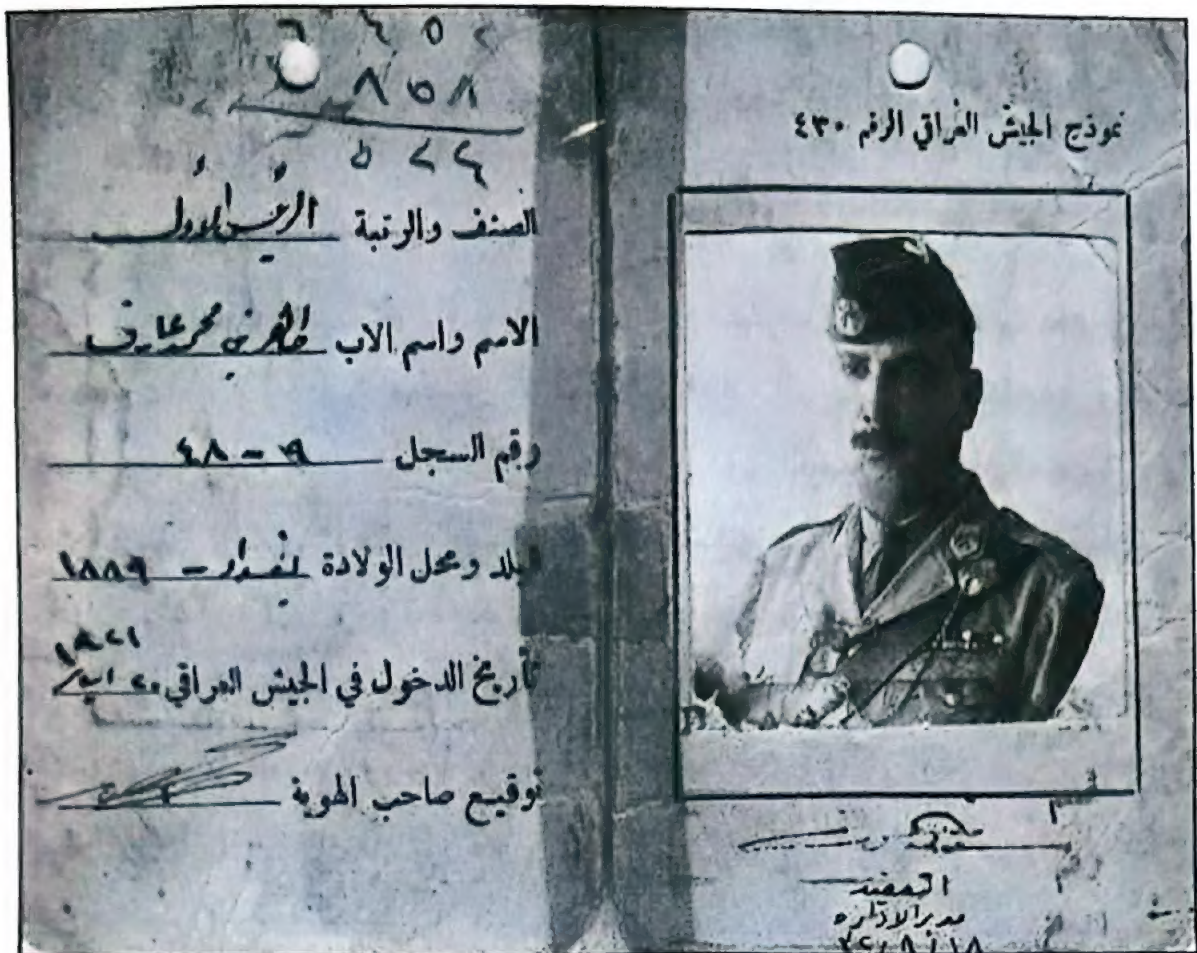 نموذج الجيش العراقي الرقم ٤٣٠
العقيد
مدير الادارة
٨٥٨
٥٢٢٤
الصنف والرتبة الرئيس الاول
الاسم واسم الاب طاهر بن محمد عارف
رقم السجل ٩ - ٤٨
البلد ومحل الولادة بغداد - ١٨٨٩
تأريخ الدخول في الجيش العراقي ٢٠
توقيع صاحب الهوية